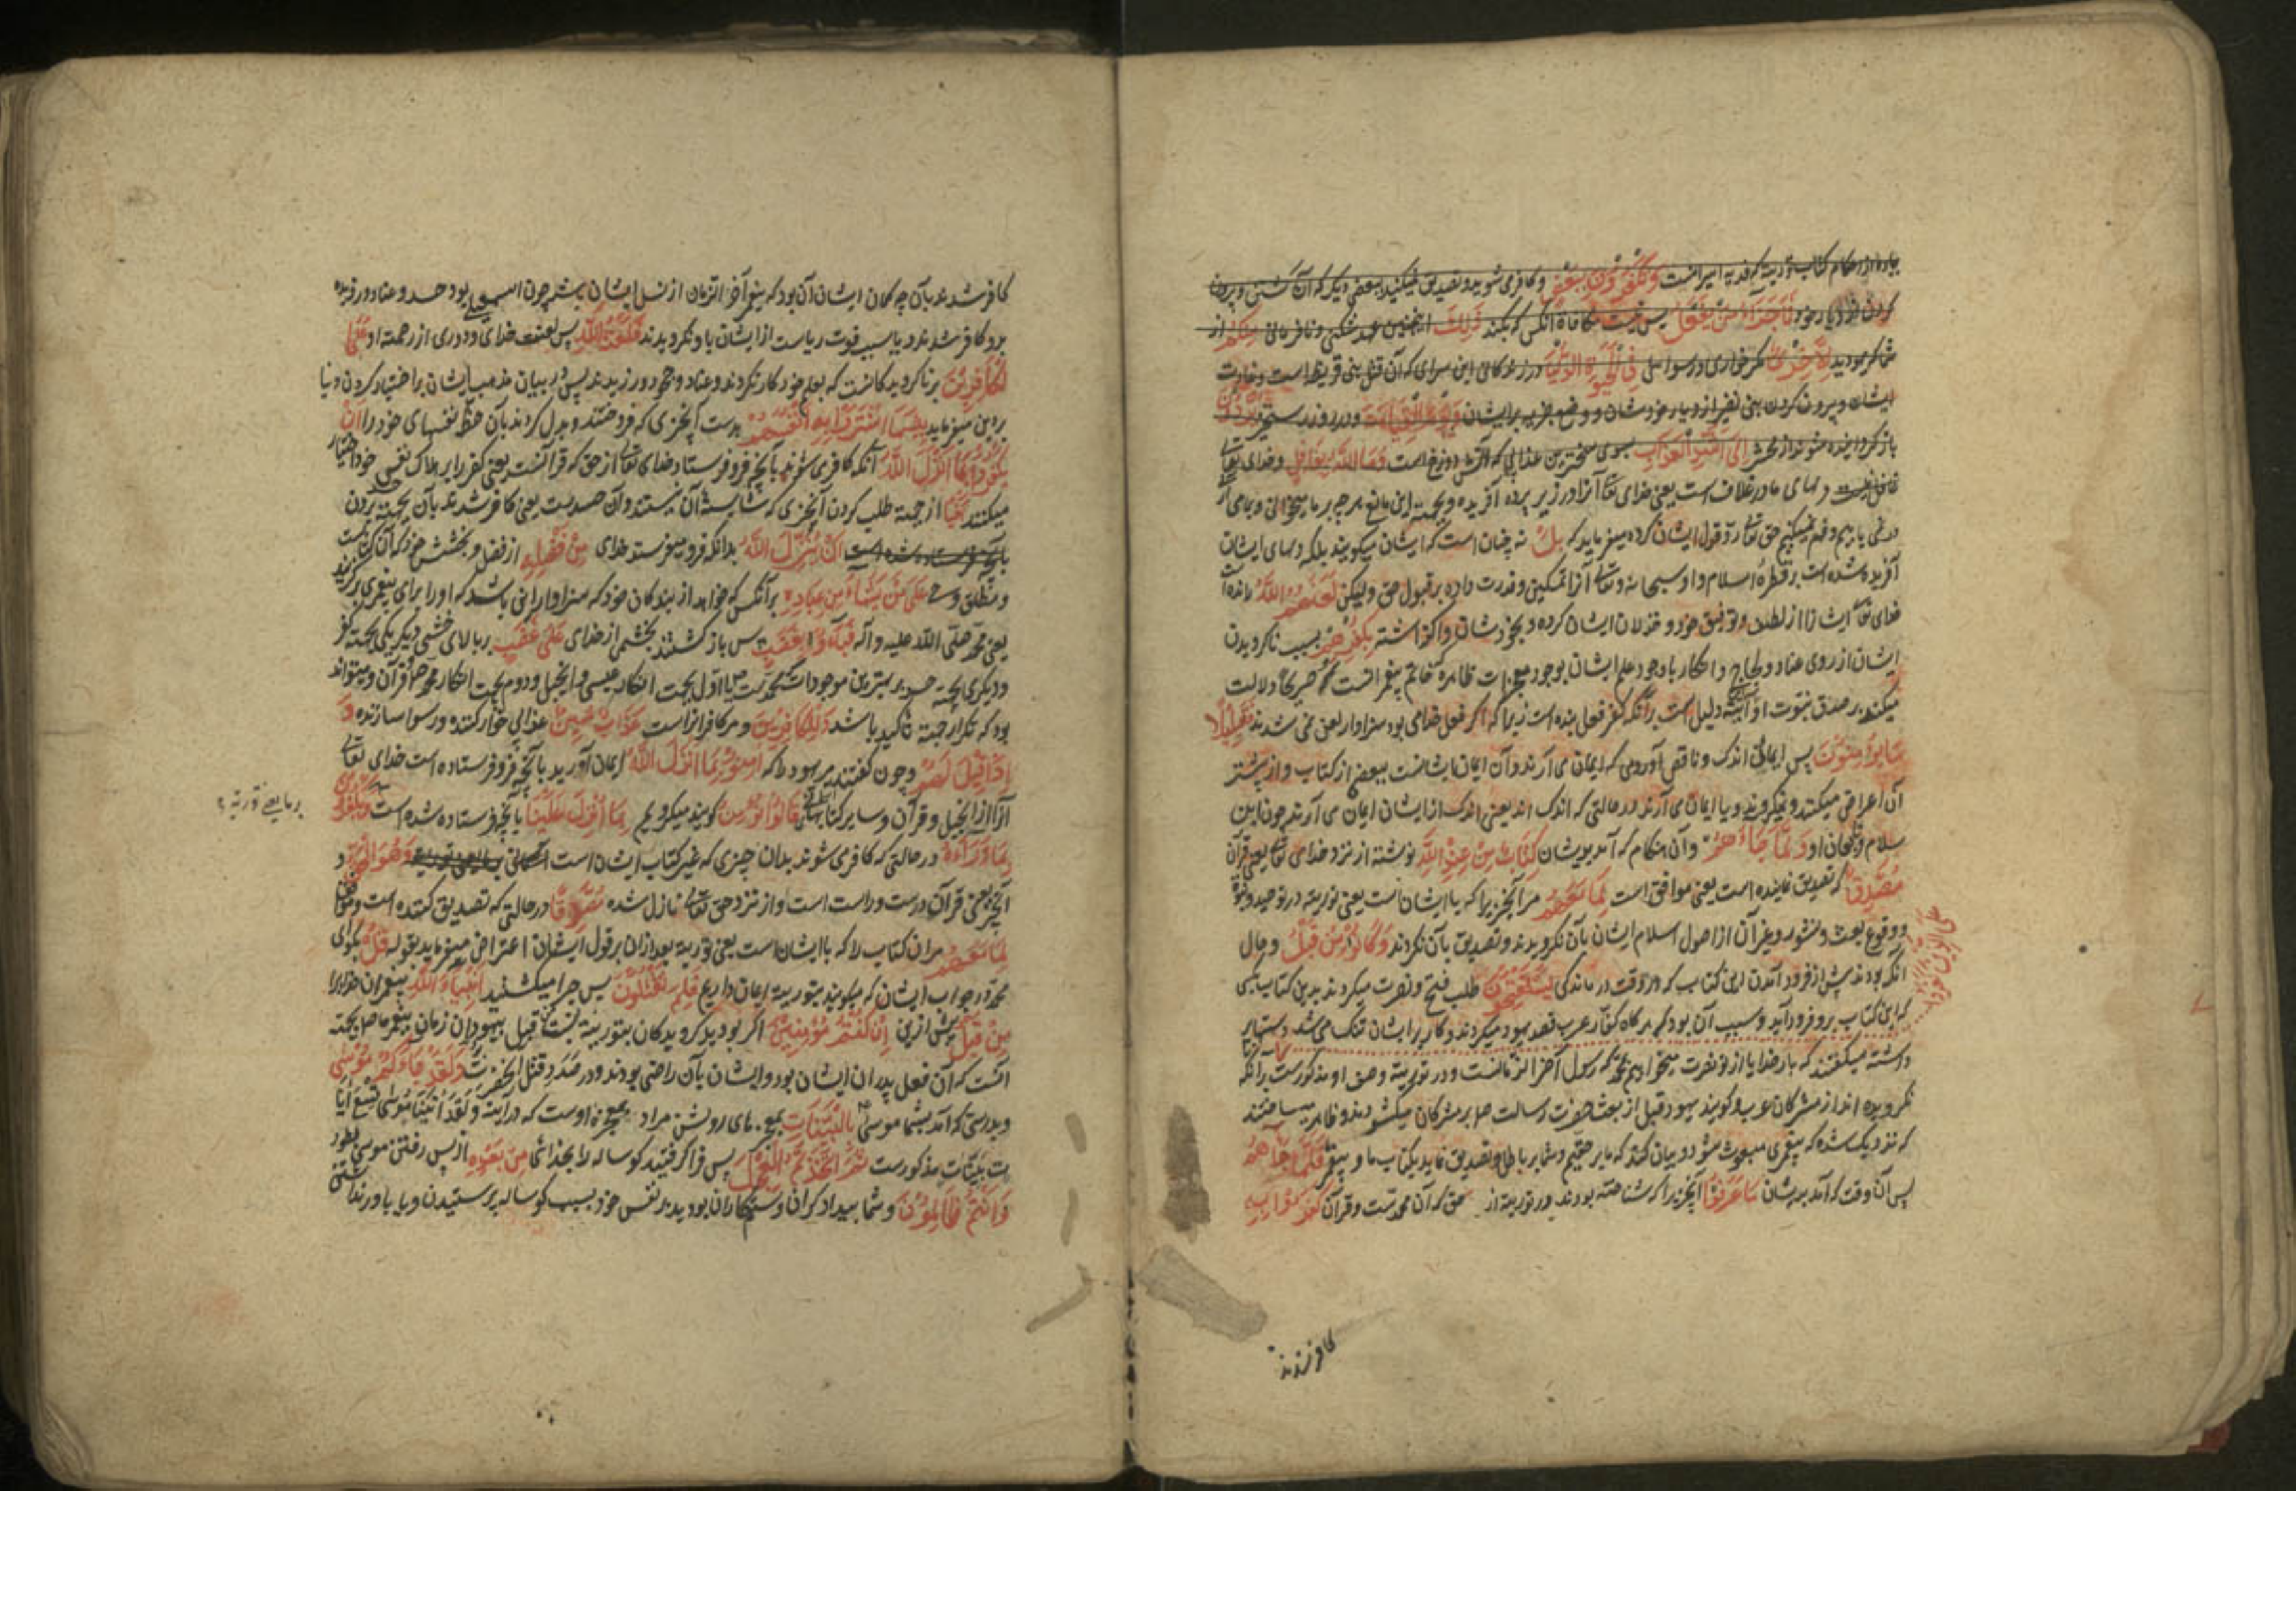 پاره از احکام کتاب توریة که فدیه اسیرانست وَتَكْفُرُونَ بِبَعْضٍ و کافر می شوید و تصدیق نمیکنید ببعضی دیگر که آن کشتن و بیرون
کردن از دیار خود فَمَا جَزَاءُ مَنْ يَفْعَلُ پس نیست مکافاة آنکس که بکند ذَلِكَ اینچنین عهد شکنی و نافرمانی مِنْكُمْ از
شما گروه یهود إِلَّا خِزْيٌ مگر خواری و رسوایی فِي الْحَيوةِ الدُّنْيَا در زندگانی این سرای که آن قتل بنی قریظه است و غارت
ایشان و بیرون کردن بنی نضیر از دیار خودشان و وضع جزیه بر ایشان وَيَوْمَ الْقِيَامَةِ و در روز رستخیز يُرَدُّونَ
باز گردانیده شوند از محشر إِلَى أَشَدِّ الْعَذَابِ بسوی سخت ترین عذابی که آتش دوزخ است وَمَا اللَّهُ بِغَافِلٍ و خدای تعالی
غافل نیست دلهای ما در غلاف است یعنی خدای تعالی آنرا در زیر پرده آفریده و بجهة این مانع هرچه بر ما میخوانی و بیامی
در نمی یابیم و فهم نمیکنیم حق تعالی رد قول ایشان کرده میفرماید که بَلْ نه چنان است که ایشان میگویند بلکه دلهای ایشان
آفریده شده است بر فطرة اسلام و او سبحانه و تعالی آنرا تمکین و قدرت داده بر قبول حق و لیکن لَعَنَهُمُ اللَّهُ رانده است
خدای تعالی ایشانرا از لطف و توفیق خود و خذلان ایشان کرده و بخودشان واگذاشته بِكُفْرِهِمْ بسبب ناگرویدن
ایشان از روی عناد و لجاج و انکار با وجود علم ایشان بوجود معجزات ظاهره که خاتم پیغمبرانست که صریحا دلالت
میکنند بر صدق نبوت او و این دلیل است برآنکه کفر فعل بنده است زیرا که اگر فعل خدای بود سزاوار لعن نمی شدند فَقَلِيلًا
مَا يُؤْمِنُونَ پس ایمانی اندک و ناقص آوردی که ایمان می آرند و آن ایمان ایشانست ببعض از کتاب و از بیشتر
آن اعراض میکنند و نمیگروند و یا ایمان می آرند در حالتی که اندک اند یعنی اندک از ایشان ایمان می آرند چون ابن
سلام و یاران او وَلَمَّا جَاءَهُمْ و آن هنگام که آمد بدیشان كِتَابٌ مِنْ عِنْدِ اللَّهِ نوشته از نزد خدای تعالی یعنی قرآن
مُصَدِّقٌ که تصدیق نماینده است یعنی موافق است لِمَا مَعَهُمْ مر آنچیزیرا که با ایشانست یعنی توریة در توحید و نبوة
و وقوع بعث و نشور و غیر آن از اصول اسلام ایشان بآن نگرویدند و تصدیق بآن نکردند وَكَانُوا مِنْ قَبْلُ و حال
آنکه بودند پیش از فرود آمدن این کتاب که در وقت درماندگی يَسْتَفْتِحُونَ طلب فتح و نصرت میکردند بدین کتاب
عَلَى الَّذِينَ كَفَرُوا
که این کتاب برو فرود آید و سبب آن بود که هرگاه کفار عرب قصد یهود میکردند و کار بر ایشان تنگ می شد
داشته میگفتند که بار خدایا از تو نصرت میخواهیم بمحمد که رسول آخر الزمانست و در توریة وصف او مذکور است
نگرویده اند از مشرکان عرب و گویند یهود قبل از بعث حضرت رسالت ص بر مشرکان میگشودند و ظاهر میساختند
که نزدیک شده که پیغمبری مبعوث شود و بیان کند که ما بر حقیم و شما بر باطل و تصدیق نماید بکتاب ما و پیغمبر فَلَمَّا جَاءَهُمْ
پس آن وقت که آمد بدیشان مَا عَرَفُوا آنچیزیرا که شناخته بودند در توریة از حق که آن محمدست و قرآن كَفَرُوا بِهِ
کافر شدند
کافر شدند بآن چه گمان ایشان آن بود که پیغمبر آخر الزمان از نسل ایشان باشد چون اسمعیلی بود حسد و عناد ورزیده
برو کافر شدند و یا بسبب فوت ریاست از ایشان باو نگرویدند فَلَعْنَةُ اللَّهِ پس لعنت خدای و دوری از رحمة او عَلَى
الْكَافِرِينَ بر ناگرویدگانست که بعلم خود کار نکردند و عناد و جحود ورزیدند پس در بیان مذمت ایشان بر اختیار کردن دنیا
بر دین میفرماید بِئْسَمَا اشْتَرَوْا بِهِ أَنْفُسَهُمْ بدست آنچیزی که فروختند و بدل کردند بآن حظ نفسهای خود را أَنْ
يَكْفُرُوا بِمَا أَنْزَلَ اللَّهُ آنکه کافر می شوند بآنچه فرو فرستاد خدای تعالی از حق که قرآنست یعنی کفر را بر هلاک نفس خود اختیار
میکنند بَغْيًا از جهة طلب کردن آنچیزی که شایسته آن نیستند و آن حسدست یعنی کافر شدند بآن بجهة حسد بردن
بآنچه فرستاده شده است أَنْ يُنَزِّلَ اللَّهُ بدانکه فرو میفرستد خدای مِنْ فَضْلِهِ از فضل و بخشش خود که آن کتابست
و مطلق وحی عَلَى مَنْ يَشَاءُ مِنْ عِبَادِهِ بر آنکس که خواهد از بندگان خود که سزاوار این باشد که او را برای پیغمبری برگزیند
یعنی محمد صلی الله علیه و آله فَبَاءُوا بِغَضَبٍ پس باز گشتند بخشمی از خدای عَلَى غَضَبٍ بر بالای خشمی دیگر یکی بجهة کفر
و دیگری بجهة حسد بر بهترین موجودات که محمدست ص یا اول بجهت انکار عیسی و انجیل و دوم بجهت انکار محمد ص و قرآن و میتواند
بود که تکرار جهة تاکید باشد وَلِلْكَافِرِينَ و مر کافرانراست عَذَابٌ مُهِينٌ عذابی خوار کننده و رسوا سازنده وَ
إِذَا قِيلَ لَهُمْ و چون گفتند مر یهود را که آمِنُوا بِمَا أَنْزَلَ اللَّهُ ایمان آورید بآنچه فرو فرستاده است خدای تعالی
آنرا از انجیل و قرآن و سایر کتابهای قَالُوا نُؤْمِنُ گویند میگرویم بِمَا أُنْزِلَ عَلَيْنَا بآنچه فرستاده شده است بر ما یعنی توریة وَيَكْفُرُونَ
بِمَا وَرَاءَهُ در حالتی که کافر می شوند بدان چیزی که غیر کتاب ایشان است وَهُوَ الْحَقُّ و
آنچه یعنی قرآن درست و راست است و از نزد حق تعالی نازل شده مُصَدِّقًا در حالتی که تصدیق کننده است و موافق
لِمَا مَعَهُمْ مر آن کتاب را که با ایشان است یعنی توریة بعد از آن بر قول ایشان اعتراض میفرماید بقوله قُلْ بگوی
محمد در جواب ایشان که میگویند بتوریة ایمان داریم فَلِمَ تَقْتُلُونَ پس چرا میکشتید أَنْبِيَاءَ اللَّهِ پیغمبران خدا را
مِنْ قَبْلُ پیش ازین إِنْ كُنْتُمْ مُؤْمِنِينَ اگر بودید گرویدگان بتوریة نسبت قتل بیهودان زمان پیغمبر ص بجهة
آنست که آن فعل پدران ایشان بود و ایشان بآن راضی بودند و در صدد قتل آنحضرت وَلَقَدْ جَاءَكُمْ مُوسَى
و بدرستی که آمد بشما موسی بِالْبَيِّنَاتِ بمعجزهای روشن مراد نه معجزه اوست که در آیة وَلَقَدْ آتَيْنَا مُوسَى تِسْعَ آيَا
ت بَيِّنَاتٍ مذکورست ثُمَّ اتَّخَذْتُمُ الْعِجْلَ پس فرا گرفتید گوساله را بخدائی مِنْ بَعْدِهِ از پس رفتن موسی بطور
وَأَنْتُمْ ظَالِمُونَ و شما بیدادگران و ستمکاران بودید بر نفس خود بسبب گوساله پرستیدن و یا
بر ما یعنی توریة